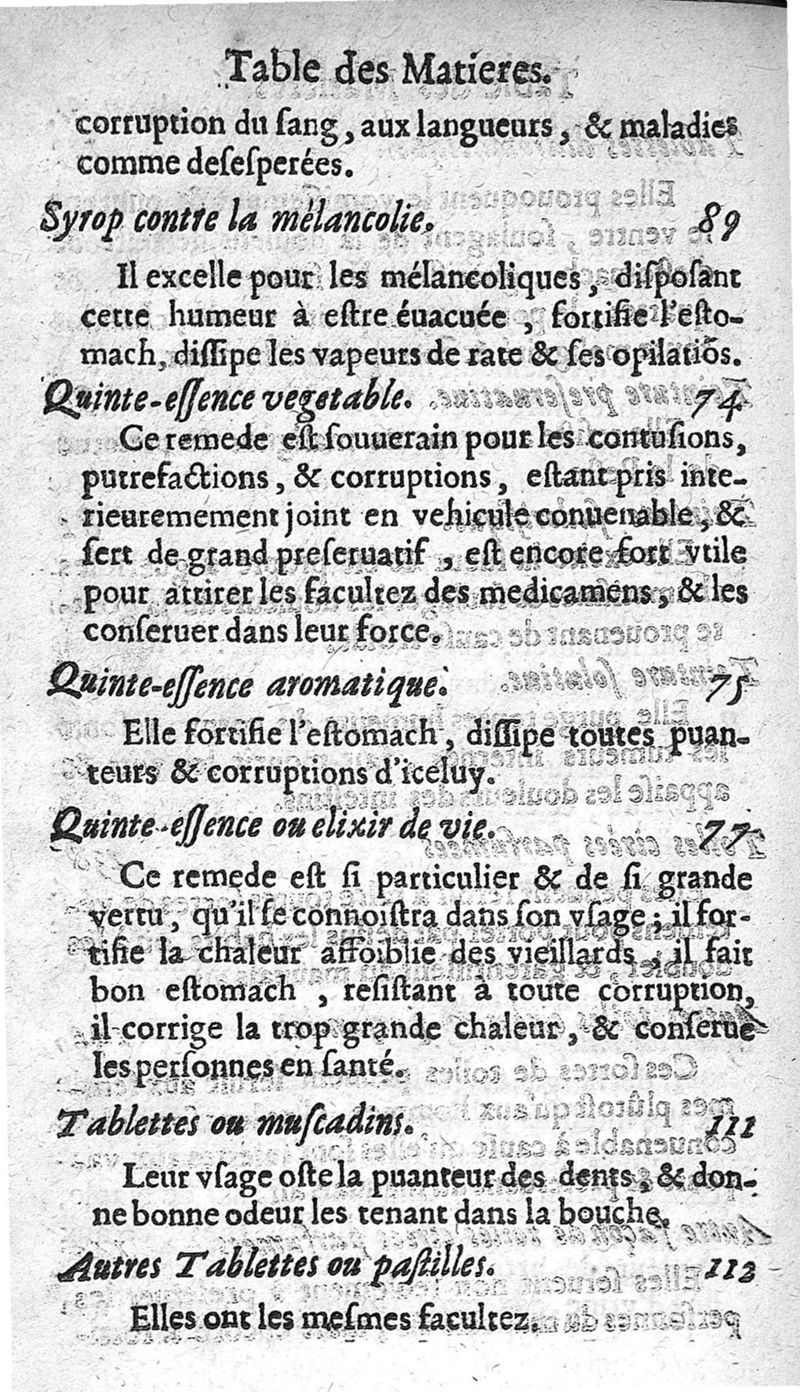 Table des Matieres.
corruption du ſang, aux langueurs, & maladies
comme deſeſperées.
Syrop contre la mélancolie. 89
Il excelle pour les mélancoliques, diſpoſant
cette humeur à eſtre éuacuée, fortifie l'eſto-
mach, diſſipe les vapeurs de rate & ſes opilatiõs.
Quinte-eſſence vegetable. 74
Ce remede eſt ſouuerain pour les contuſions,
putrefactions, & corruptions, eſtant pris inte-
rieuremement joint en vehicule conuenable, &
ſert de grand preſeruatif, eſt encore fort vtile
pour attirer les facultez des medicamens, & les
conſeruer dans leur force.
Quinte-eſſence aromatique. 75
Elle fortifie l'eſtomach, diſſipe toutes puan-
teurs & corruptions d'iceluy.
Quinte-eſſence ou elixir de vie. 77
Ce remede eſt ſi particulier & de ſi grande
vertu, qu'il ſe connoiſtra dans ſon vſage; il for-
tifie la chaleur affoiblie des vieillards, il fait
bon eſtomach, reſiſtant à toute corruption,
il corrige la trop grande chaleur, & conſerue
les perſonnes en ſanté.
Tablettes ou muſcadins. 111
Leur vſage oſte la puanteur des dents, & don-
ne bonne odeur les tenant dans la bouche.
Autres Tablettes ou paſtilles. 112
Elles ont les meſmes facultez.